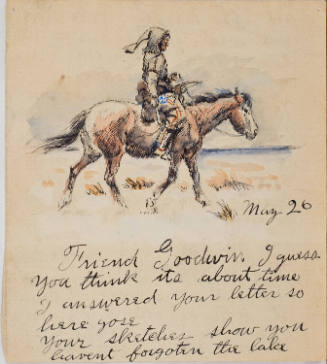 May 26
Friend Goodwin I guess
you think its about time
I answered your letter so
here gose
Your sketches show you
havent forgoten the lake